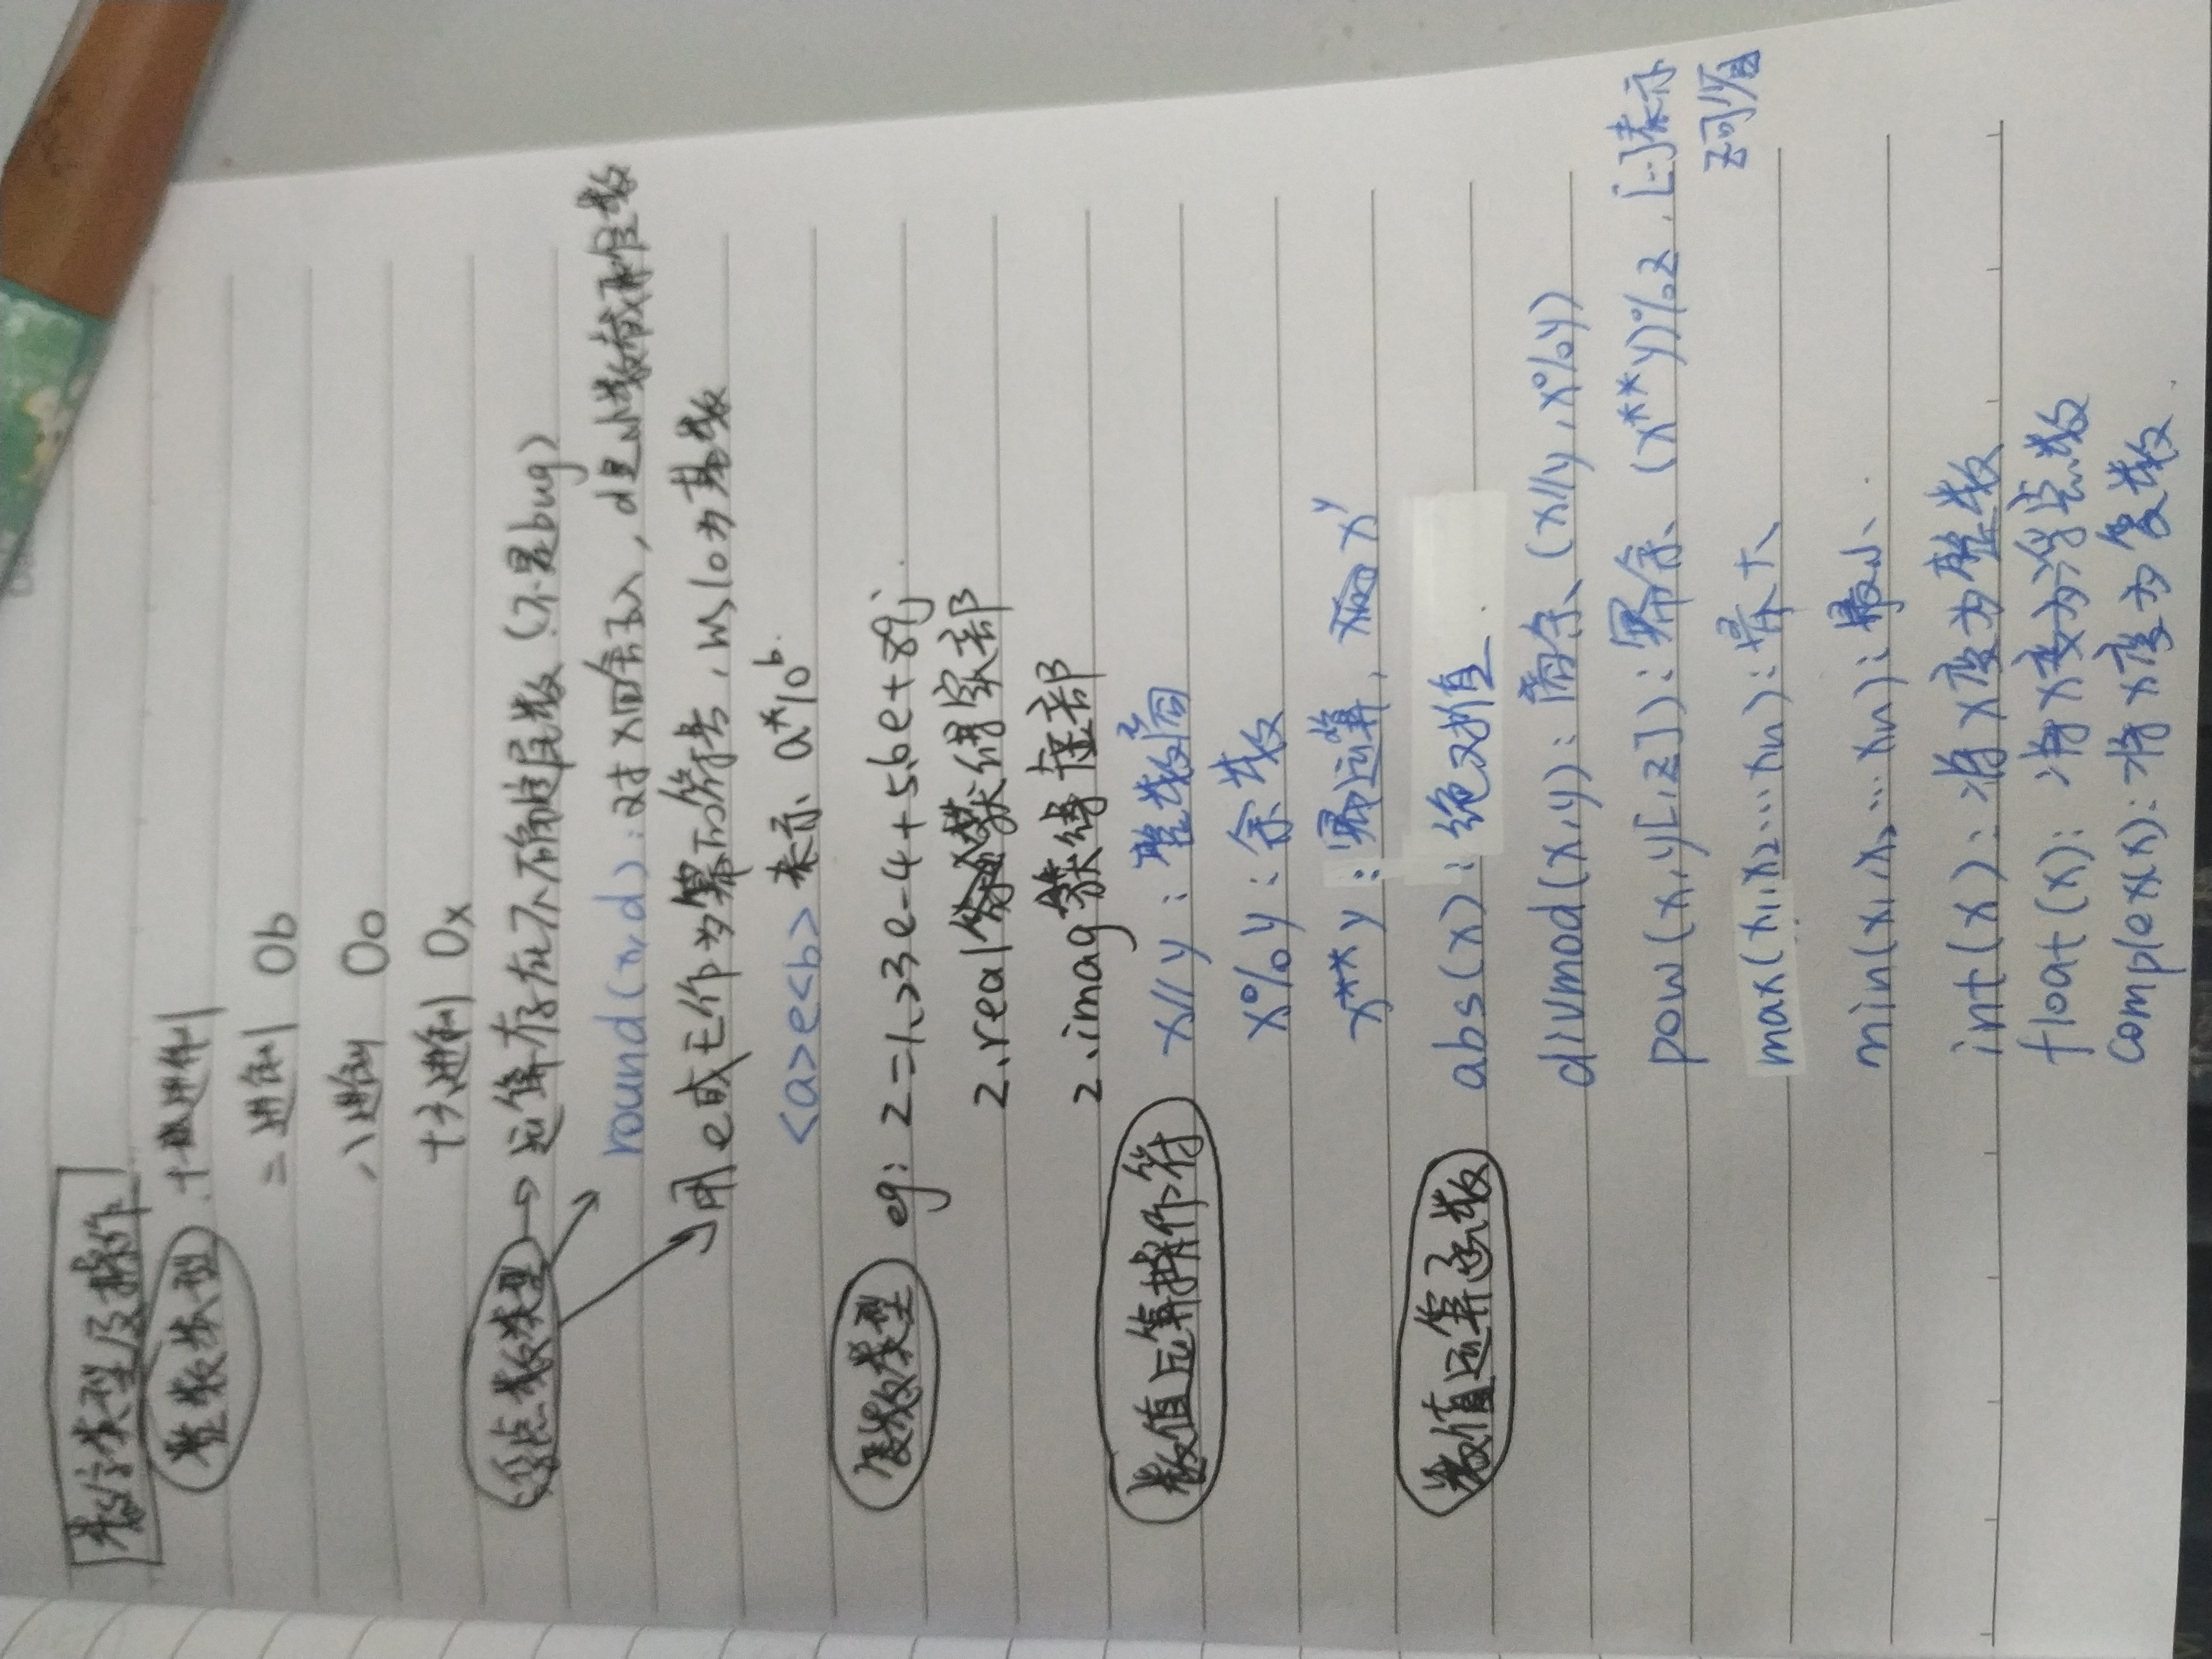 数字类型及操作
整数类型 十进制
二进制 0b
八进制 0o
十六进制 0x
浮点数类型→运算存在不确定尾数(不是bug)
round(x,d):对x四舍五入,d是小数截取位数
用e或E作为幂的符号,以10为基数
<a>e<b> 表示 a*10^b
复数类型 eg: z=1.23e-4+5.6e+89j
z.real 获得实部
z.imag 获得虚部
数值运算操作符 x//y:整数商
x%y:余数
x**y:幂运算, x^y
数值运算函数 abs(x):绝对值
divmod(x,y):商余、(x//y,x%y)
pow(x,y[,z]):幂余、(x**y)%z,[..]表示
z可省
max(x1,x2...xn):最大、
min(x1,x2...xn):最小、
int(x):将x变为整数
float(x):将x变为浮点数
complex(x):将x变为复数